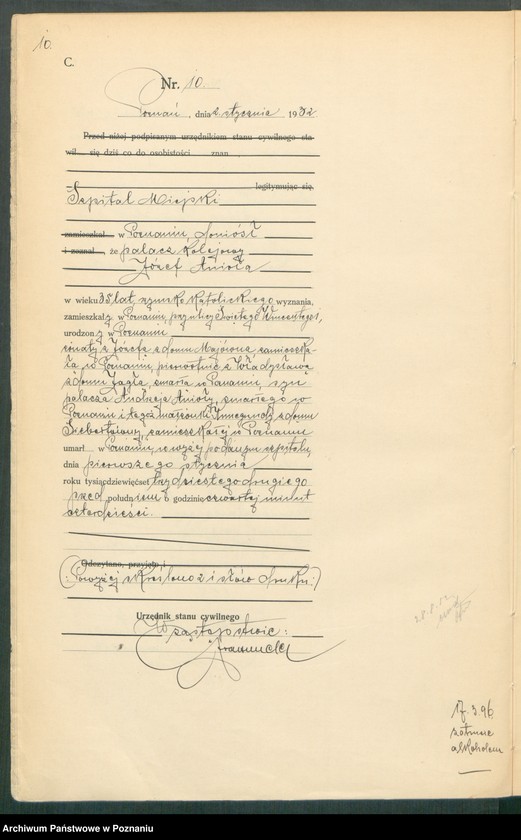 10.
C.
Nr. 10
Poznań, dnia 2 stycznia 1932
Przed niżej podpisanym urzędnikiem stanu cywilnego sta-
wił się dziś co do osobistości znan
legitymując się
Szpital Miejski
zamieszkał w Poznaniu, doniósł
i zeznał, że palacz kolejowy
Józef Anioła
w wieku 35 lat, rzymsko katolickiego wyznania,
zamieszkały w Poznaniu, przy ulicy Świętego Wincentego 1,
urodzony w Poznaniu
żonaty z Józefą z domu Majówną, zamieszka-
łą w Poznaniu, pierwotnie z Władysławą
z domu zmarłą w Poznaniu, syn
palacza Andrzeja Anioły, zmarłego w
Poznaniu i tegoż małżonki Kunegundy z domu
zamieszkałej w Poznaniu
umarł w Poznaniu, w wyżej podanym szpitalu,
dnia pierwszego stycznia
roku tysiącdziewięćset trzydziestego drugiego
przed południem o godzinie czwartej minut
czterdzieści.
Odczytano, przyjęto i
(: Powyżej skreślono 2 i słów druku :)
Urzędnik stanu cywilnego
W zastępstwie:
17.3.96
alkoholem
Archiwum Państwowe w Poznaniu